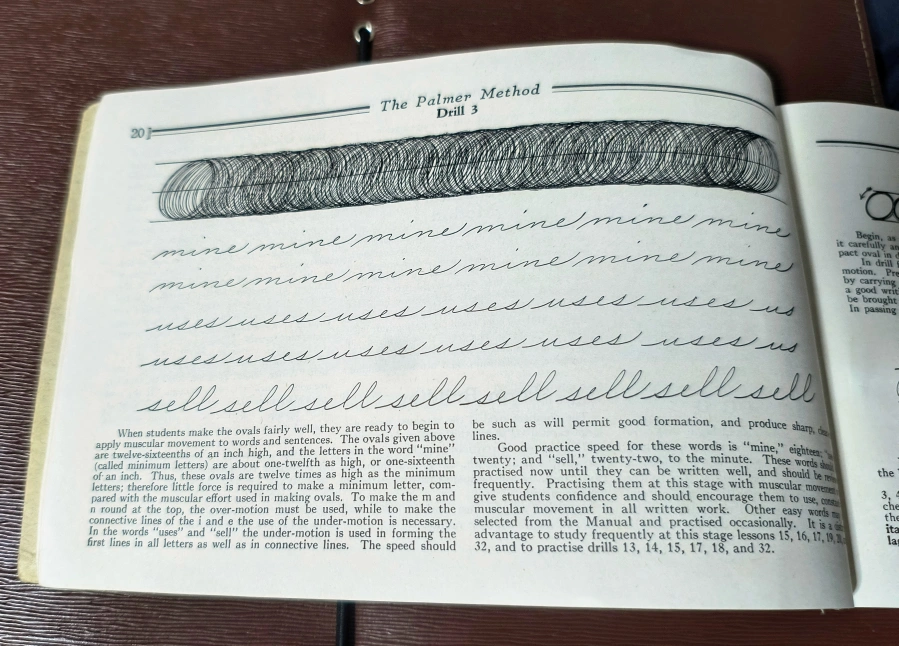 20]
The Palmer Method
Drill 3
mine mine mine mine mine mine
mine mine mine mine mine mine
uses uses uses uses uses uses us
uses uses uses uses uses uses us
sell sell sell sell sell sell sell sell
When students make the ovals fairly well, they are ready to begin to
apply muscular movement to words and sentences. The ovals given above
are twelve-sixteenths of an inch high, and the letters in the word "mine"
(called minimum letters) are about one-twelfth as high, or one-sixteenth
of an inch. Thus, these ovals are twelve times as high as the minimum
letters; therefore little force is required to make a minimum letter, com-
pared with the muscular effort used in making ovals. To make the m and
n round at the top, the over-motion must be used, while to make the
connective lines of the i and e the use of the under-motion is necessary.
In the words "uses" and "sell" the under-motion is used in forming the
first lines in all letters as well as in connective lines. The speed should
be such as will permit good formation, and produce sharp,
lines.
Good practice speed for these words is "mine," eighteen;
twenty; and "sell," twenty-two, to the minute. These words
practised now until they can be written well, and should be
frequently. Practising them at this stage with muscular movement
give students confidence and should encourage them to use,
muscular movement in all written work. Other easy words
selected from the Manual and practised occasionally. It is a
advantage to study frequently at this stage lessons 15, 16, 17, 19,
32, and to practise drills 13, 14, 15, 17, 18, and 32.
Begin, as
it carefully
pact oval in
In drill
motion.
by carrying
a good
be brought
In passing
the
3, 4
the